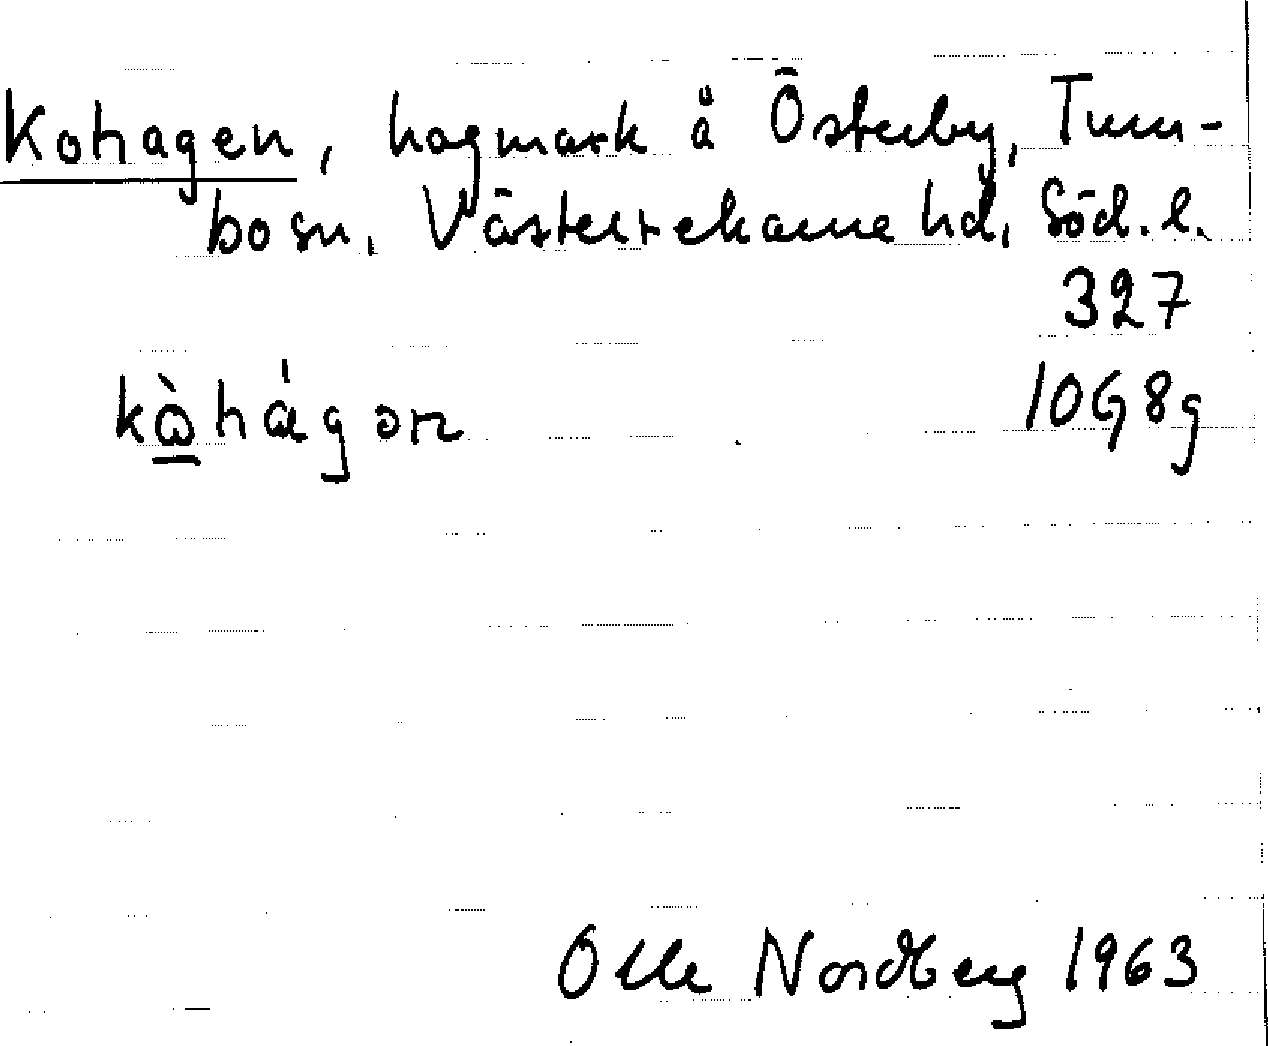 Kohagen, hagmark å Österby, Tum-
bo sn, Västerrekarne hd, Söd. l.
327
10G 8g
Olle Nordberg 1963